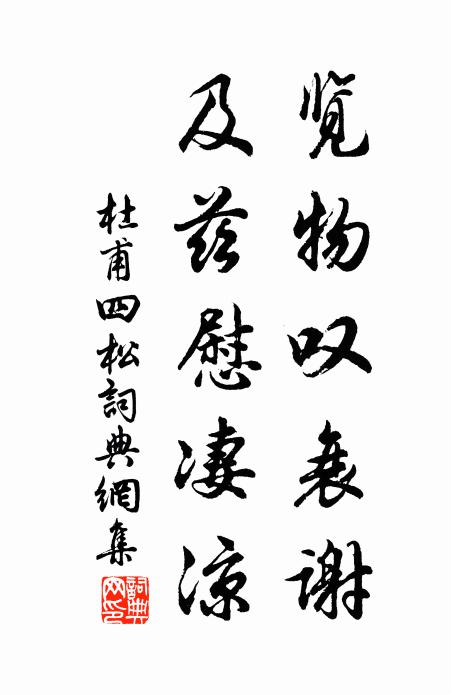 览物叹衰谢
及兹慰凄凉
杜甫四松詞典網集
詞典网印